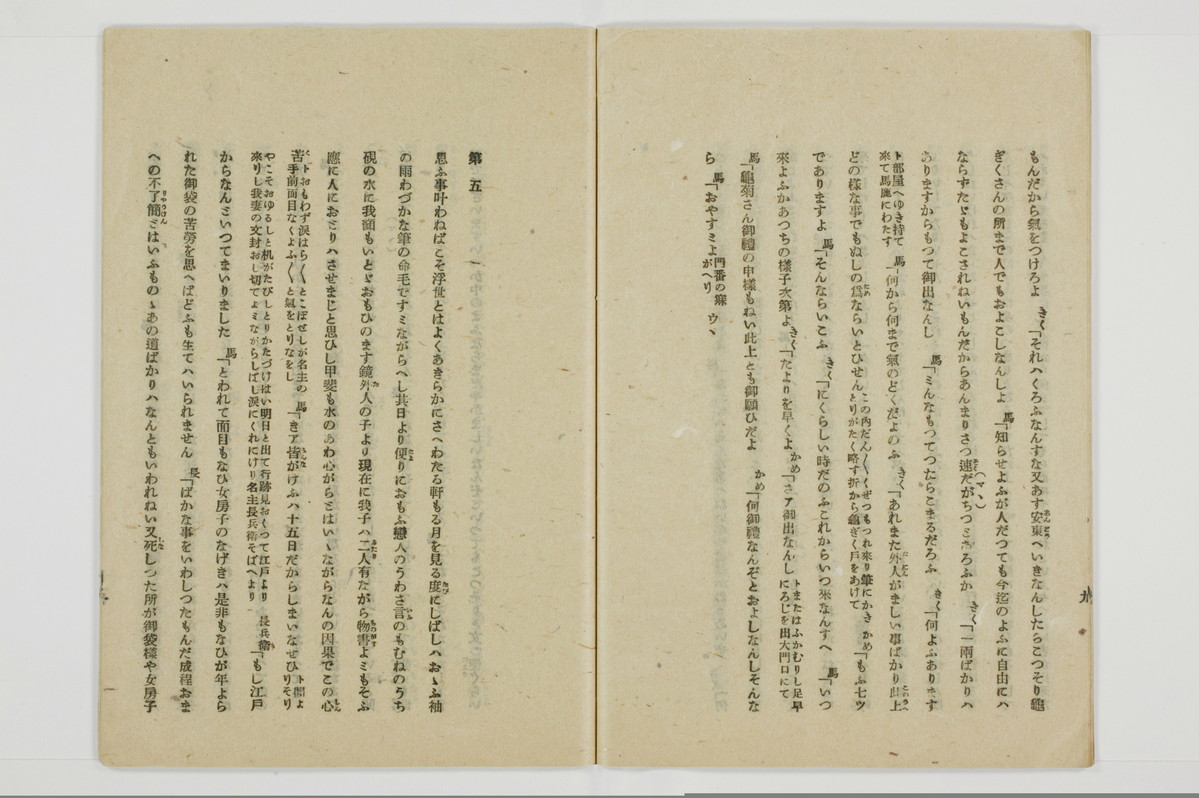 もんだから氣をつけろよ きく「それハくろふなんすな又あす安東へいきなんしたらこつそり龜
ぎくさんの所まで人でもおよこしなんしよ 馬「知らせよふが人だつても今迄のよふに自由にハ
ならずたゞもよこされねいもんだからあんまりさつ速だがちつとさろふか きく「一兩ばかりハ
ありますからもつて御出なんし 馬「ミんなもつてつたらこまるだろふ きく「何よふあります
ト部屋へゆき持て
來て馬鹿にわたす 馬「何から何まで氣のどくだよのふ きく「あれまた外人がましい事ばかり此上
どの樣な事でもぬしの爲ならいとひせん この内だん〳〵くぜつもつれ來り筆にかき
とりがたく略す折から龜ぎく戸をあけて かめ「もふ七ツ
でありますよ 馬「そんならいこふ きく「にくらしい時だのふこれからいつ來なんすへ 馬「いつ
來よふかあつちの樣子次第よ きく「たよりを早くよ かめ「さア御出なんし トまたはふかむりし足早
にろじを出大門口にて
馬「龜菊さん御禮の申樣もねい此上とも御願ひだよ かめ「何御禮なんぞとおよしなんしそんな
ら 馬「おやすミよ 門番の寐
がへり ウヽ
九
第五
思ふ事叶わねばこそ浮世とはよくあきらかにさへわたる軒もる月を見る度にしばしハおゝふ袖
の雨わづかな筆の命毛ですミながらへし其日より便りにおもふ戀人のうわさ言のもむねのうち
硯の水に我顏もいとゞおもひのます鏡外人の子より現在に我子ハ二人有ながら物書よミもそふ
應に人におとりハさせまじと思ひし甲斐も水のあわ心がらとはいゝながらなんの因果でこの心
苦 トおもわず涙はら〳〵とこぼせしが名主の
手前面目なくよふ〳〵と氣をとりなをし 馬「さア皆がけふハ十五日だからしまいなせひ ト聞よ
りそり
やこそおゆるしと机がたびしとりかたづけはい明日と出て行跡見おくつて江戸より
來りし我妻の文封おし切てよミながらしばし涙にくれにけり名主長兵衞そばへより 長兵衞「もし江戸
からなんといつてまいりました 馬「とわれて面目もなひ女房子のなげきハ是非もなひが年よら
れた御袋の苦勞を思へばどふも生てハいられません 長「ばかな事をいわしつたもんだ成程おま
への不了簡とはいふものゝあの道ばかりハなんともいわれねい又死しつた所が御袋樣や女房子